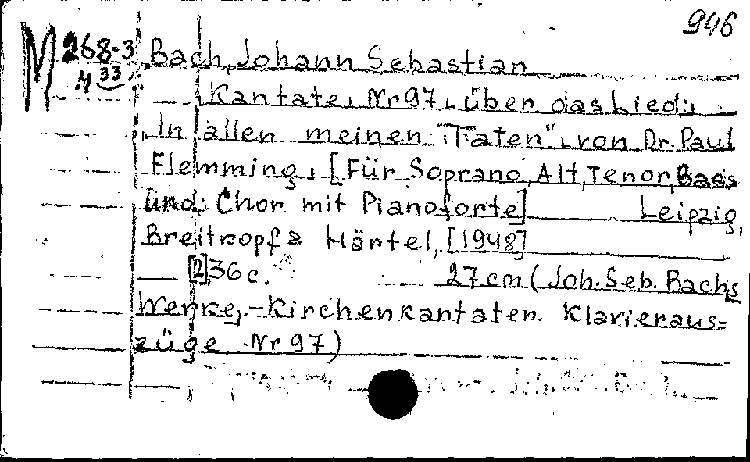 946
M 268-3
.4 33
Bach, Johann Sebastian
Kantate, Nr 97, über das Lied:
"In allen meinen Taten", von Dr. Paul
Flemming, [Für Soprano, Alt, Tenor, Bass
und Chor mit Pianoforte] Leipzig,
Breitkopf & Härtel, [1948]
[2] 36 c. 27 cm (Joh. Seb. Bachs
Werke,-Kirchenkantaten. Klavieraus=
züge Nr 97)